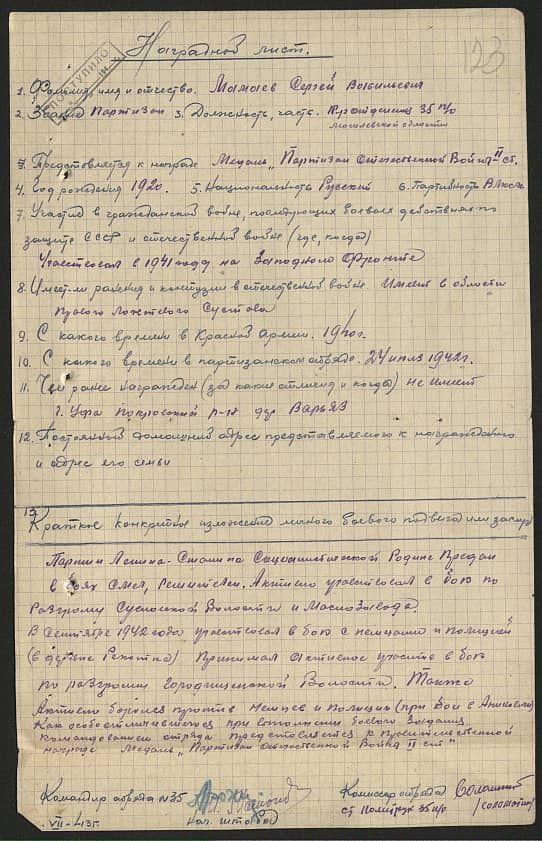 Наградной лист.
ПОСТУПИЛО
123
1. Фамилия, имя и отчество. Мамаев Сергей Васильевич
2. Звание Партизан 3. Должность, часть. 35 п/о
Могилевской области
3. Представляется к награде Медаль "Партизан Отечественной Войны II ст.
4. Год рождения 1920. 5. Национальность Русский 6. Партийность ВЛКСМ
7. Участие в гражданской войне, последующих боевых действиях по
защите СССР и отечественной войне (где, когда)
Участвовал в 1941 году на Западном Фронте
8. Имеет-ли ранения и контузии в отечественной войне. Имеет в области
Правого Суства
9. С какого времени в Красной Армии. 1940г.
10. С какого времени в партизанском отряде. 24 июля 1942г.
11. Чем ранее награжден (за какие отличия и когды) не имеет
г. Уфа Покровский р-он дер Варьяз
12. Постоянный домашний адрес представляемого к награждению
и адрес его семьи
13.
Краткое конкретное изложение личного боевого подвига или заслуг
Партии Ленина-Сталина Социалистической Родине Предан
в боях смел, решителен. Активно участвовал в бою по
разгрому Волости и Маслозавода
В Сентябре 1942 года участвовал в бою с немцами и полицией
(в дерне) Принимал Активное участие в бою
по разгрому Городищенской Волости. Также
Активно боролся против Немцев и Полиции (при бои с)
Как особоотличившегося при выполнении боевого задания
командованием отряда представляется к Правительственной
награде Медаль "Партизан Отечественной Войны II ст"
Командир отряда N35 Комиссар отряда
нач. штаба ст. Политрук 35 п/о
VII-43г.